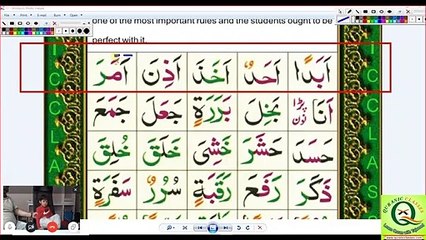 one of the most important rules and the students ought to be
perfect with it.
اَبَدًا اَحَدٌ اَخَذَ اَذِنَ اَمَرَ
اَنَا بَخِلَ بَرَرَةٍ جَعَلَ جَمَعَ
حَسَدَ حَشَرَ خَشِىَ خَلَقَ خُلِقَ
ذَكَرَ رَفَعَ رَقَبَةٍ سُرُرٌ سَفَرَةٍ
QURANIC CLASSES